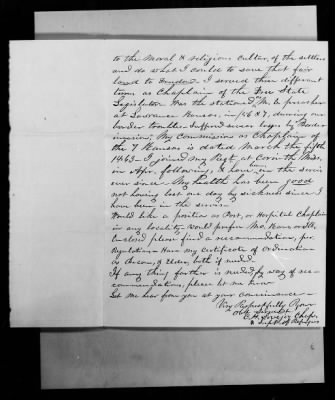 to the Moral & religious culture, of the settlers
and do what I could to save that fair
land to freedom. I served three different
times as Chaplain of the Free State
Legislature. Was the stationed M. E. preacher
at Lawrance Kansas, in /56 & 7, during our
border troubles. Suffered severe
My Commission as Chaplain of
the 7 Kansas is dated March the fifth
1863 – I joined my Regt, at Corinth Miss.
in Apr. following, & have been in the servis
ever since. My health has been good
not having lost one day by sickness since I
have been in the servis.
Would like a position as Post, or Hospital Chaplain
in any locality. Would prefer Mo. Kans or Ills.
Enclosed please find a recommendation, per.
Regulations. Have my certificate of Ordination
as deacon, & Elder, both if need.
If any thing further is needed by way of rec-
commendations, please let me know
Let me hear from you at your convenience –
Very Respectfully Your
Obt. Servt
C. H. Lovejoy Chap.
& Supt. of Refugees